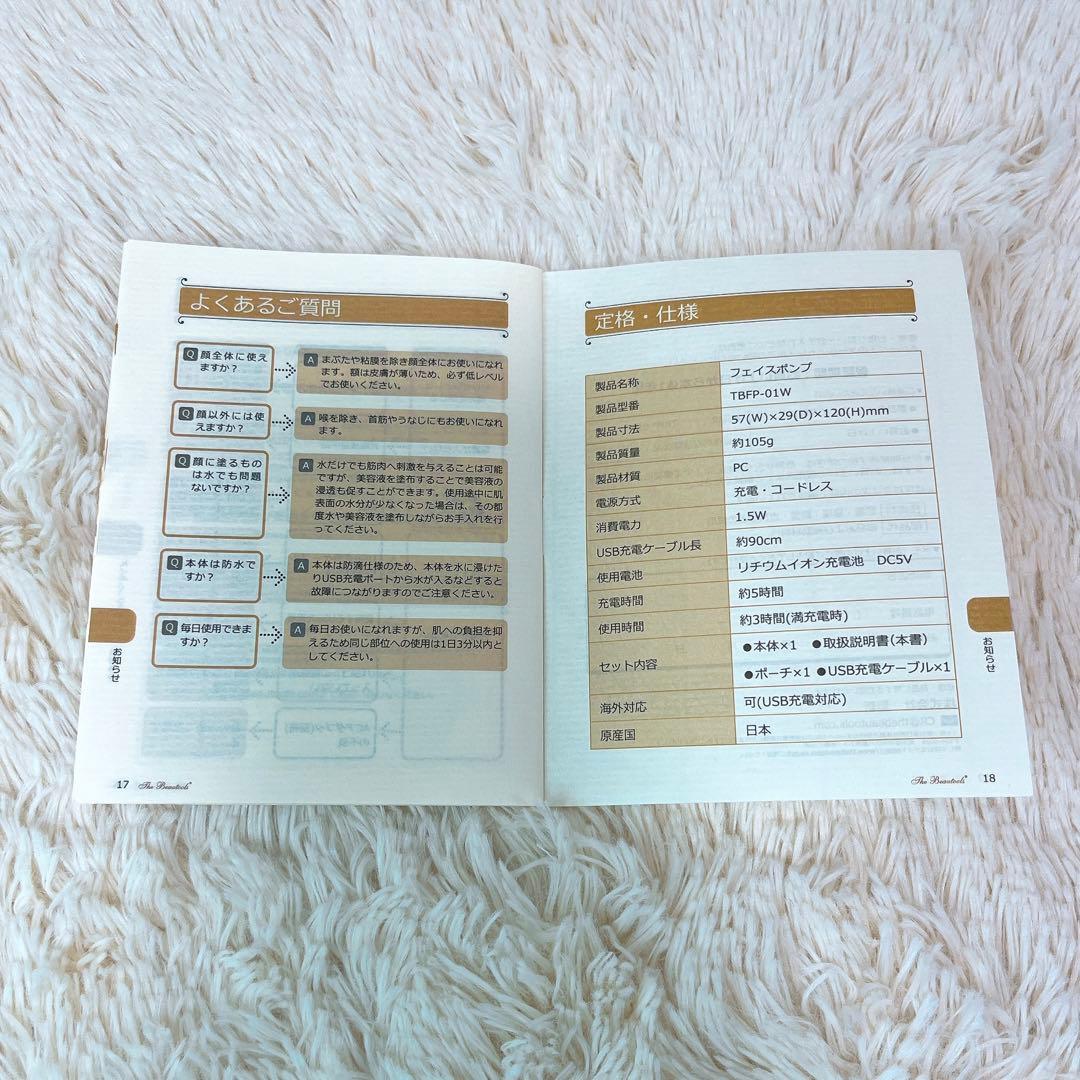 よくあるご質問
Q 顔全体に使え
ますか？
A まぶたや粘膜を除き顔全体にお使いになれ
ます。額は皮膚が薄いため、必ず低レベル
でお使いください。
Q 顔以外には使
えますか？
A 喉を除き、首筋やうなじにもお使いになれ
ます。
Q 顔に塗るもの
は水でも問題
ないですか？
A 水だけでも筋肉へ刺激を与えることは可能
ですが、美容液を塗布することで美容液の
浸透も促すことができます。使用途中に肌
表面の水分が少なくなった場合は、その都
度水や美容液を塗布しながらお手入れを行
ってください。
Q 本体は防水で
すか？
A 本体は防滴仕様のため、本体を水に浸けた
りUSB充電ポートから水が入るなどすると
故障につながりますのでご注意ください。
Q 毎日使用できま
すか？
A 毎日お使いになれますが、肌への負担を抑
えるため同じ部位への使用は1日3分以内と
してください。
お知らせ
17 The Beautools®
定格・仕様
製品名称 フェイスポンプ
製品型番 TBFP-01W
製品寸法 57(W)×29(D)×120(H)mm
製品質量 約105g
製品材質 PC
電源方式 充電・コードレス
消費電力 1.5W
USB充電ケーブル長 約90cm
使用電池 リチウムイオン充電池 DC5V
充電時間 約5時間
使用時間 約3時間(満充電時)
セット内容 ●本体×1 ●取扱説明書(本書)
●ポーチ×1 ●USB充電ケーブル×1
海外対応 可(USB充電対応)
原産国 日本
お知らせ
The Beautools® 18